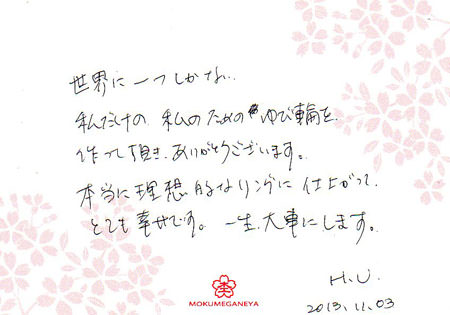 世界に一つしかない、
私だけの、私のためのゆび輪を
作って頂き、ありがとうございます。
本当に理想的なリングに仕上がって、
とても幸せです。一生、大事にします。
H.U.
2013.11.03
MOKUMEGANEYA